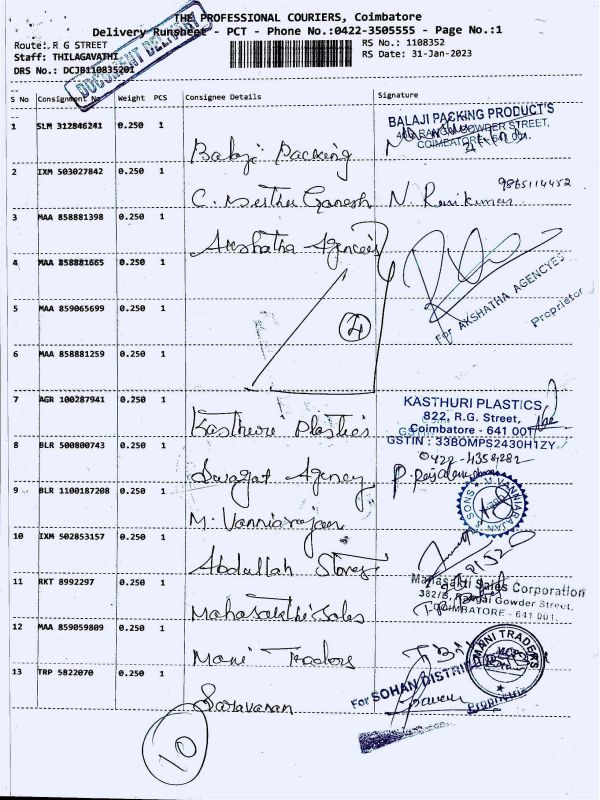 THE PROFESSIONAL COURIERS, Coimbatore
Delivery Runsheet - PCT - Phone No.:0422-3505555 - Page No.:1
Route: R G STREET
Staff: THILAGAVATHI
DRS No.: DCJB110835201
DOCUMENT DELIVERY
RS No.: 1108352
RS Date: 31-Jan-2023
S No Consignment No Weight PCS Consignee Details Signature
1 SLM 312846241 0.250 1 Balaji Packing
BALAJI PACKING PRODUCT'S
GOWDER STREET,
COIMBATORE - 641 001.
2 IXM 503027842 0.250 1 C. Ganesh N. Ravikumar 9865114452
3 MAA 858881398 0.250 1 Akshatha Agencies
4 MAA 858881665 0.250 1
For AKSHATHA AGENCYES
Proprietor
5 MAA 859065699 0.250 1
4
6 MAA 858881259 0.250 1
7 AGR 100287941 0.250 1 Kasthuri Plastics
KASTHURI PLASTICS
822, R.G. Street,
Coimbatore - 641 001
GSTIN : 33BOMPS2430H1ZY
8 BLR 500800743 0.250 1 Swagat Agency
9 BLR 1100187208 0.250 1 M. Vanniarajan
M. VANNIARAJAN SONS
10 IXM 502853157 0.250 1 Abdullah Stores
11 RKT 8992297 0.250 1 Mahasakthi Sales
Mahasakti Sales Corporation
Gowder Street,
COIMBATORE - 641 001.
12 MAA 859059809 0.250 1 Mani Traders
MANI TRADERS
13 TRP 5822070 0.250 1 Saravanan
For SOHAN DISTRI
Proprietrix
10